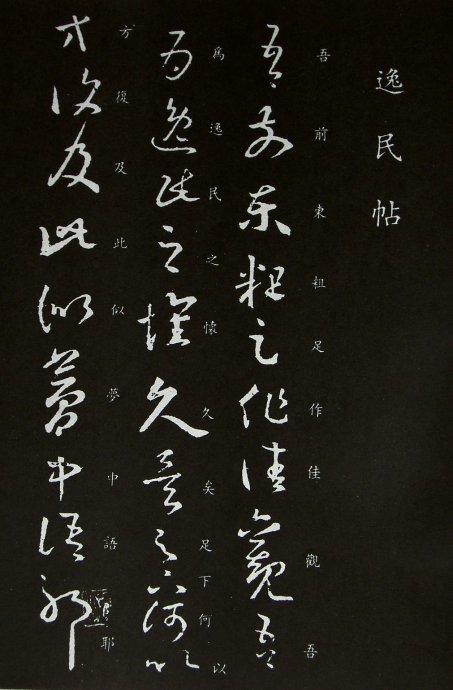 逸民帖
吾前東粗足作佳觀吾
吾前東粗足作佳觀吾
為逸民之懷久矣足下何以
為逸民之懷久矣足下何以
方復及此似夢中語耶
方復及此似夢中語耶